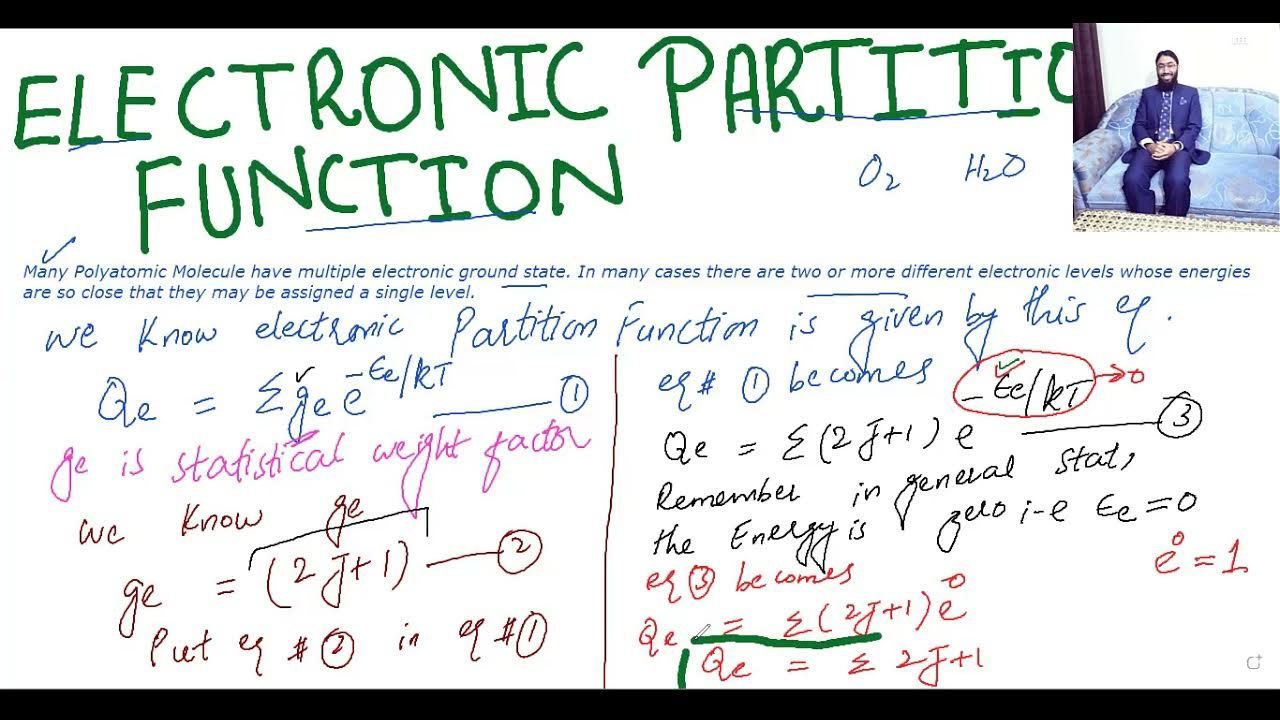 ELECTRONIC PARTITIO
FUNCTION
O₂ H₂O
Many Polyatomic Molecule have multiple electronic ground state. In many cases there are two or more different electronic levels whose energies
are so close that they may be assigned a single level.
we know electronic Partition Function is given by this eq.
Qe = Σ ge e^-Ee/kT ① 
ge is statistical weight factor
we know ge
ge = (2J+1) ②
Put eq # ② in eq #①
eq# ① becomes
Qe = Σ(2J+1) e^-Ee/kT → 0 ③
Remember in general stat,
the Energy is zero i-e Ee=0
e⁰ = 1
eq ③ becomes
Qe = Σ(2J+1) e^-0
Qe = Σ 2J+1